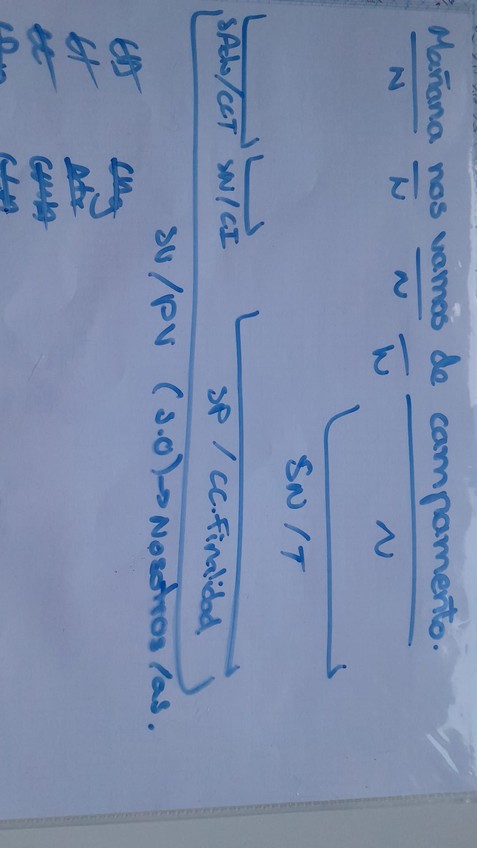 Mañana nos vamos de campamento.
N N N N N
SN/T
SAdv/CCT SN/CI SP/CC.Finalidad
SV/PV (S.O)→Nosotros/as.